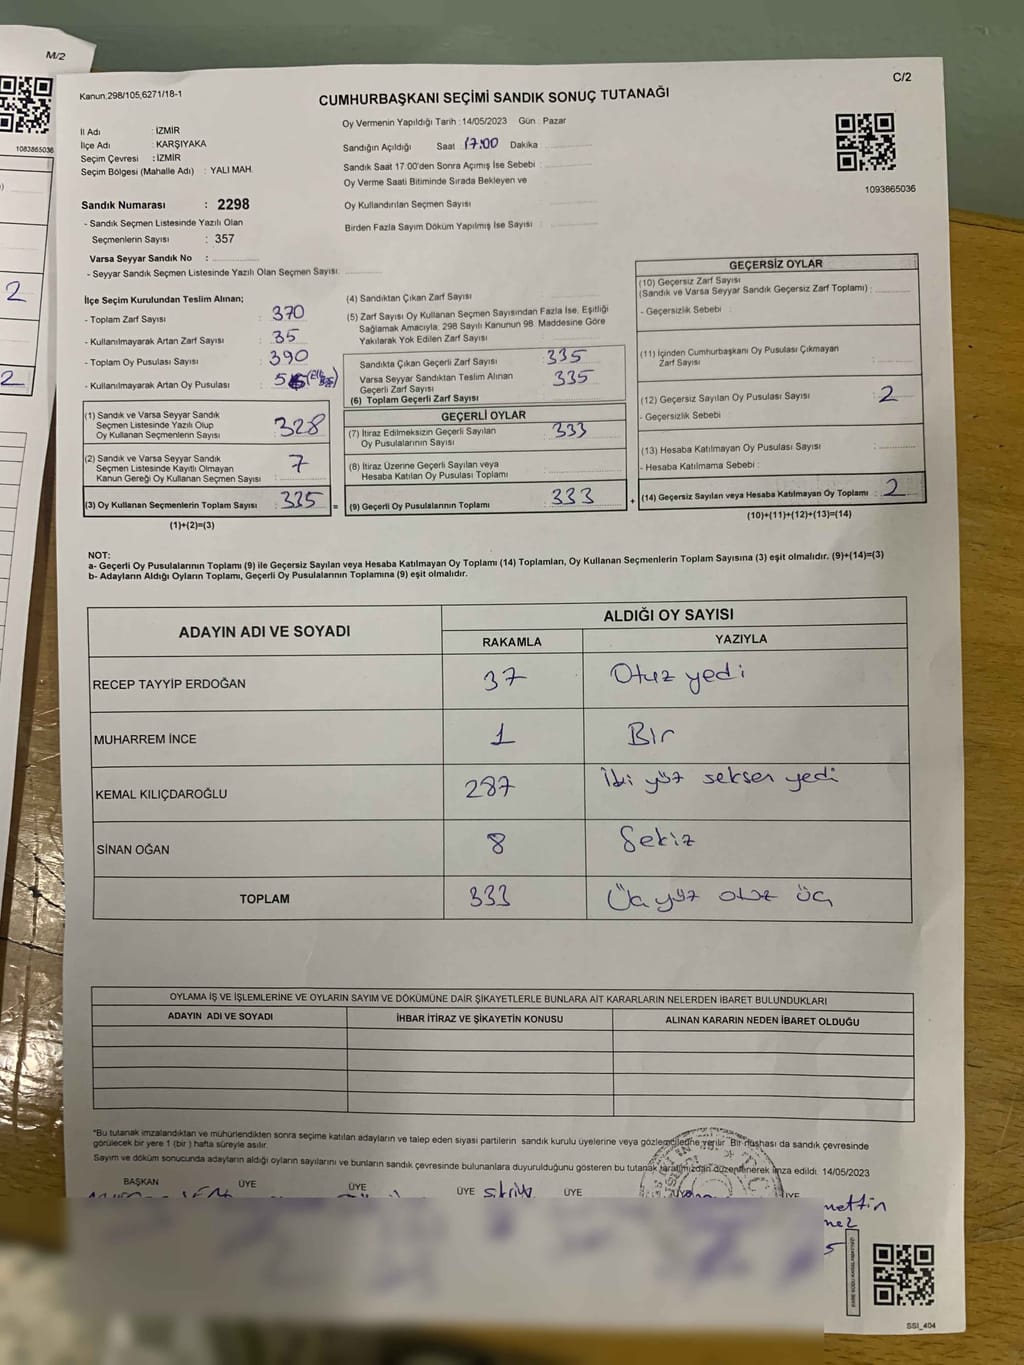 M/2
1083865036
2
2
C/2
Kanun,298/105,6271/18-1
CUMHURBAŞKANI SEÇİMİ SANDIK SONUÇ TUTANAĞI
1093865036
İl Adı : İZMİR
İlçe Adı : KARŞIYAKA
Seçim Çevresi : İZMİR
Seçim Bölgesi (Mahalle Adı) : YALI MAH.
Oy Vermenin Yapıldığı Tarih : 14/05/2023 Gün : Pazar
Sandığın Açıldığı Saat 17:00 Dakika
Sandık Saat 17:00'den Sonra Açımış İse Sebebi :
Oy Verme Saati Bitiminde Sırada Bekleyen ve
Oy Kullandırılan Seçmen Sayısı
Birden Fazla Sayım Döküm Yapılmış İse Sayısı :
Sandık Numarası : 2298
- Sandık Seçmen Listesinde Yazılı Olan
Seçmenlerin Sayısı : 357
Varsa Seyyar Sandık No :
- Seyyar Sandık Seçmen Listesinde Yazılı Olan Seçmen Sayısı:
İlçe Seçim Kurulundan Teslim Alınan;
- Toplam Zarf Sayısı : 370
- Kullanılmayarak Artan Zarf Sayısı : 35
- Toplam Oy Pusulası Sayısı : 390
- Kullanılmayarak Artan Oy Pusulası :
(1) Sandık ve Varsa Seyyar Sandık
Seçmen Listesinde Yazılı Olup
Oy Kullanan Seçmenlerin Sayısı 328
(2) Sandık ve Varsa Seyyar Sandık
Seçmen Listesinde Kayıtlı Olmayan
Kanun Gereği Oy Kullanan Seçmen Sayısı : 7
(3) Oy Kullanan Seçmenlerin Toplam Sayısı : 335 =
(1)+(2)=(3)
(4) Sandıktan Çıkan Zarf Sayısı
(5) Zarf Sayısı Oy Kullanan Seçmen Sayısından Fazla İse, Eşitliği
Sağlamak Amacıyla, 298 Sayılı Kanunun 98. Maddesine Göre
Yakılarak Yok Edilen Zarf Sayısı
Sandıkta Çıkan Geçerli Zarf Sayısı : 335
Varsa Seyyar Sandıktan Teslim Alınan
Geçerli Zarf Sayısı
(6) Toplam Geçerli Zarf Sayısı : 335
GEÇERLİ OYLAR
(7) İtiraz Edilmeksizin Geçerli Sayılan
Oy Pusulalarının Sayısı : 333
(8) İtiraz Üzerine Geçerli Sayılan veya
Hesaba Katılan Oy Pusulası Toplamı
(9) Geçerli Oy Pusulalarının Toplamı : 333 +
GEÇERSİZ OYLAR
(10) Geçersiz Zarf Sayısı
(Sandık ve Varsa Seyyar Sandık Geçersiz Zarf Toplamı) :
- Geçersizlik Sebebi :
(11) İçinden Cumhurbaşkanı Oy Pusulası Çıkmayan
Zarf Sayısı :
(12) Geçersiz Sayılan Oy Pusulası Sayısı : 2
- Geçersizlik Sebebi
(13) Hesaba Katılmayan Oy Pusulası Sayısı :
- Hesaba Katılmama Sebebi :
(14) Geçersiz Sayılan veya Hesaba Katılmayan Oy Toplamı : 2
(10)+(11)+(12)+(13)=(14)
NOT:
a- Geçerli Oy Pusulalarının Toplamı (9) ile Geçersiz Sayılan veya Hesaba Katılmayan Oy Toplamı (14) Toplamları, Oy Kullanan Seçmenlerin Toplam Sayısına (3) eşit olmalıdır. (9)+(14)=(3)
b- Adayların Aldığı Oyların Toplamı, Geçerli Oy Pusulalarının Toplamına (9) eşit olmalıdır.
ADAYIN ADI VE SOYADI
ALDIĞI OY SAYISI
RAKAMLA YAZIYLA
RECEP TAYYİP ERDOĞAN 37 Otuz yedi
MUHARREM İNCE 1 Bir
KEMAL KILIÇDAROĞLU 287 İki yüz seksen yedi
SİNAN OĞAN 8 Sekiz
TOPLAM 333 Üç yüz otuz üç
OYLAMA İŞ VE İŞLEMLERİNE VE OYLARIN SAYIM VE DÖKÜMÜNE DAİR ŞİKAYETLERLE BUNLARA AİT KARARLARIN NELERDEN İBARET BULUNDUKLARI
ADAYIN ADI VE SOYADI İHBAR İTİRAZ VE ŞİKAYETİN KONUSU ALINAN KARARIN NEDEN İBARET OLDUĞU
*Bu tutanak imzalandıktan ve mühürlendikten sonra seçime katılan adayların ve talep eden siyasi partilerin sandık kurulu üyelerine veya gözlemcilerine verilir. Bir nüshası da sandık çevresinde
görülecek bir yere 1 (bir ) hafta süreyle asılır.
Sayım ve döküm sonucunda adayların aldığı oyların sayılarını ve bunların sandık çevresinde bulunanlara duyurulduğunu gösteren bu tutanak tarafımızdan düzenlenerek imza edildi. 14/05/2023
BAŞKAN ÜYE ÜYE ÜYE ÜYE ÜYE ÜYE
SSI_404